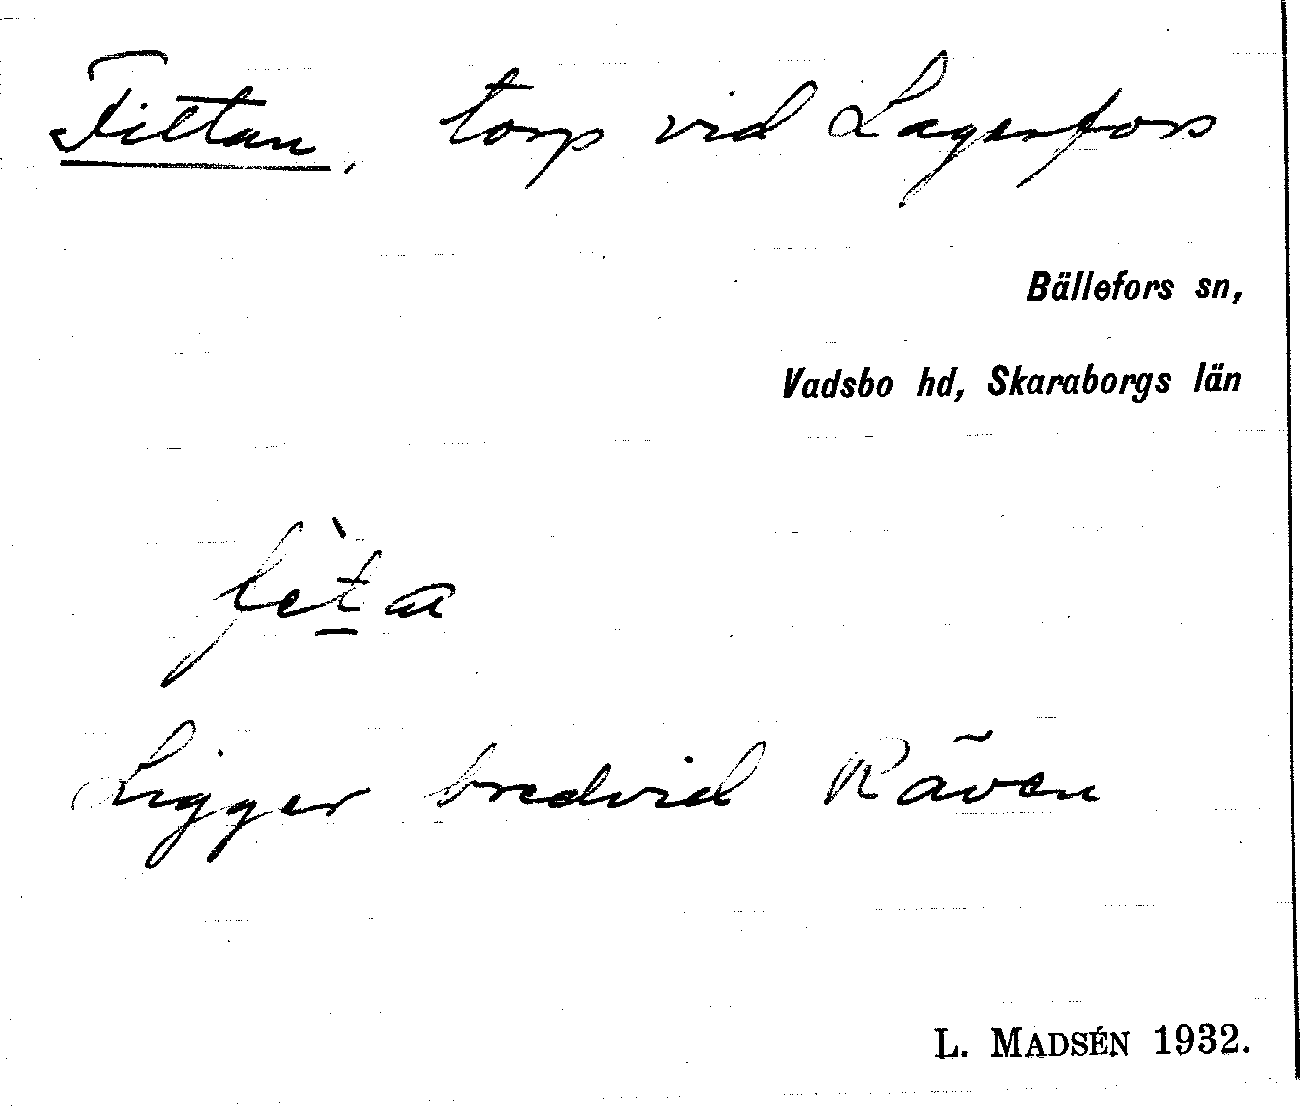 Fittan, torp vid Lagerfors
Bällefors sn,
Vadsbo hd, Skaraborgs län
fèta
Ligger bredvid Räven
L. MADSÉN 1932.